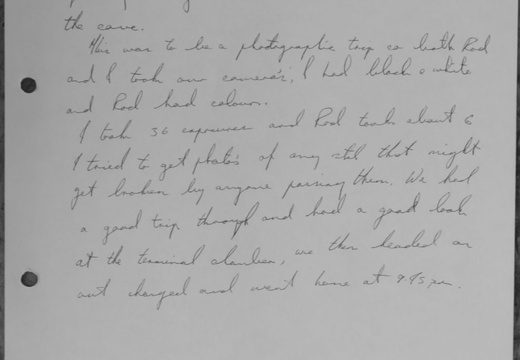 the cave.
This was to be a photographic trip so both Rod
and I took our camera's, I had black & white
and Rod had colour.
I took 36 exposures and Rod took about 6
I tried to get photo's of any stal that might
get broken by anyone passing them. We had
a good trip through and had a good look
at the terminal chamber, we then headed on
out changed and went home at 9.45 pm.